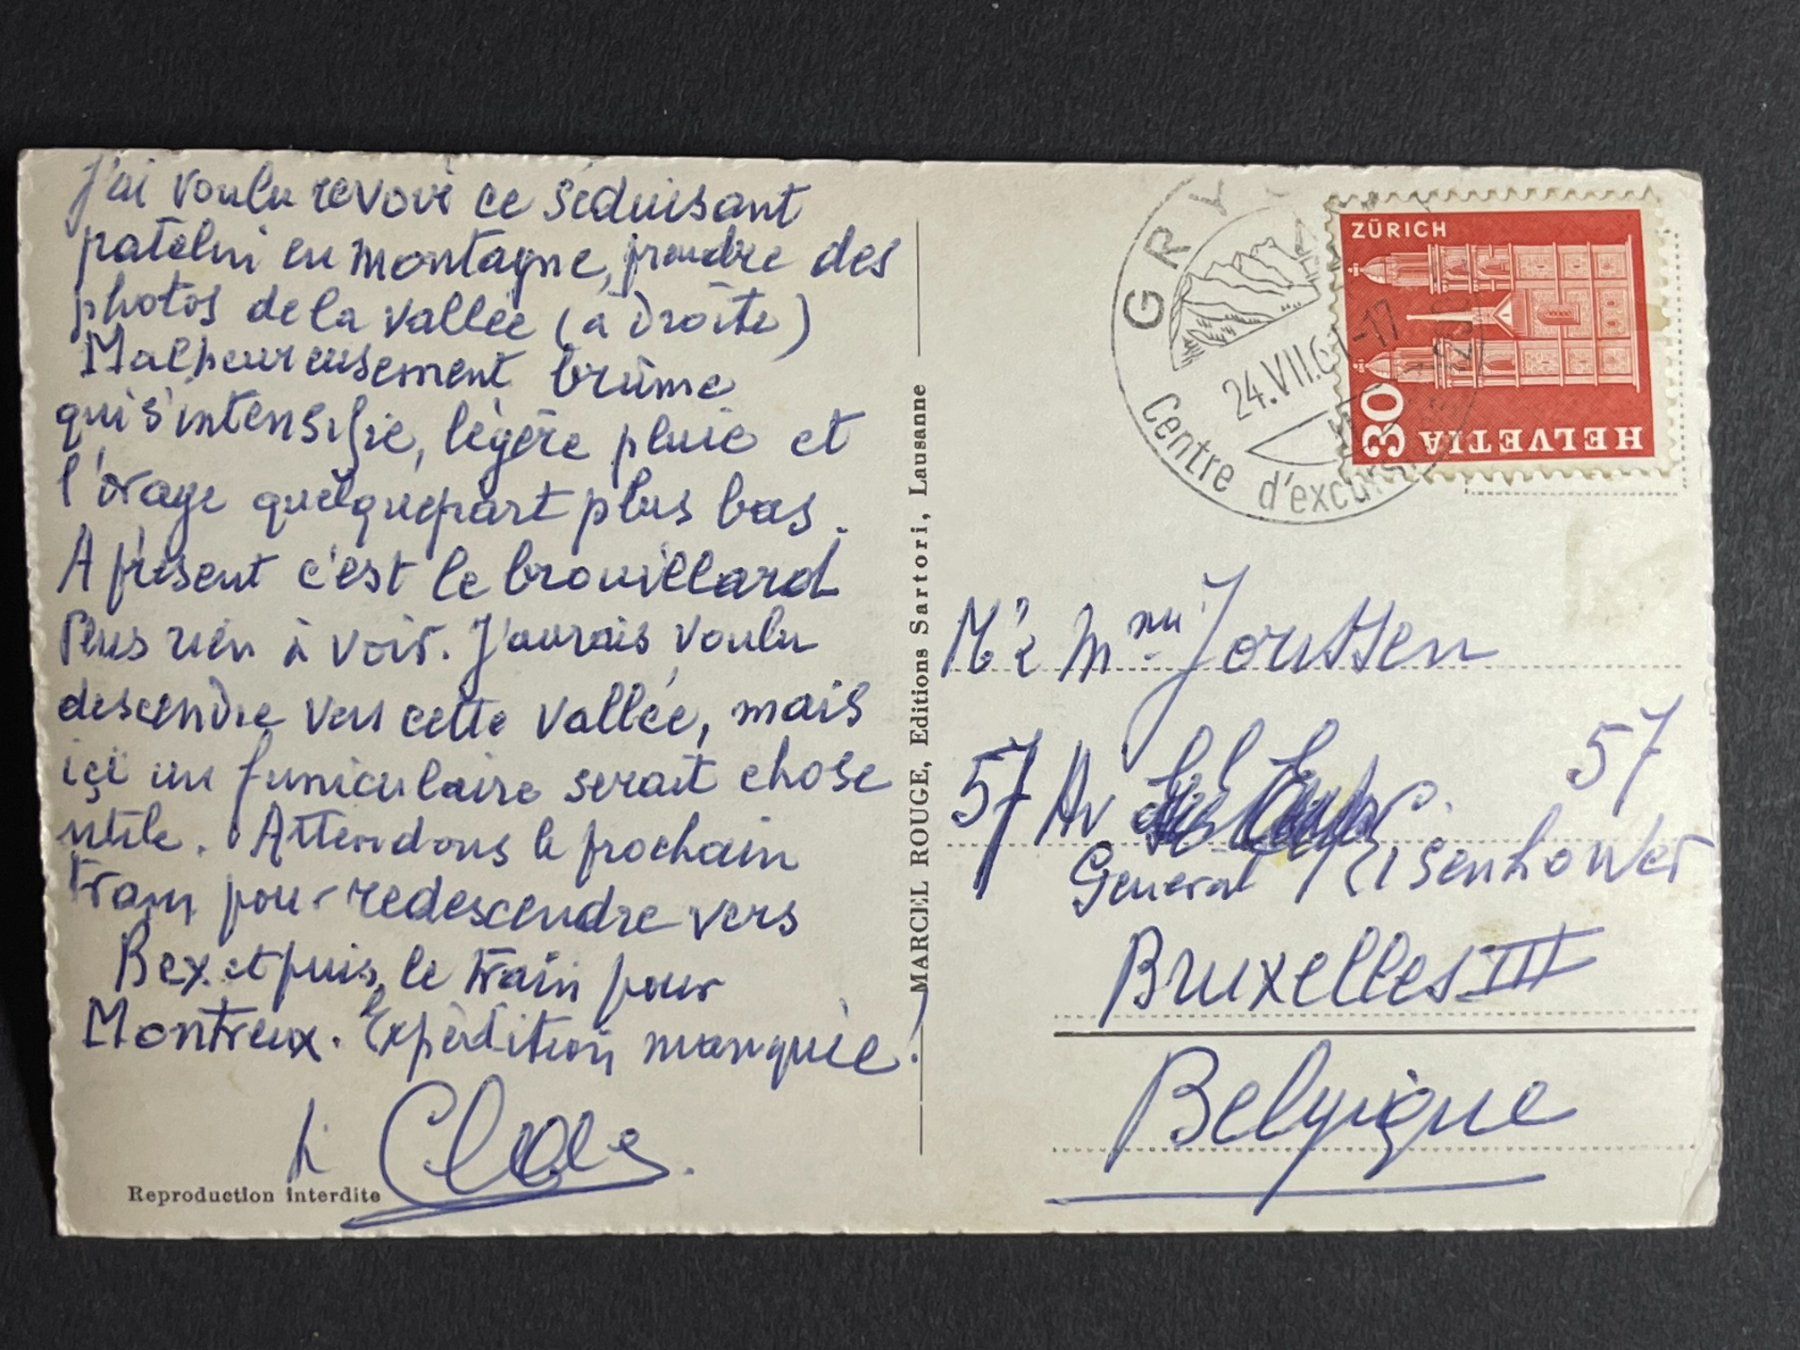 J'ai voulu revoir ce séduisant
patelin en montagne, prendre des
photos de la vallée (à droite)
Malheureusement brûme
qui s'intensifie, légère pluie et
l'orage quelquepart plus bas.
A présent c'est le brouillard
Plus rien à voir. J'aurais voulu
descendre vers cette vallée, mais
içi un funiculaire serait chose
utile. Attendons le prochain
tram pour redescendre vers
Bex et puis, le train pour
Montreux. Expédition manquée!
Reproduction interdite
MARCEL ROUGE, Editions Sartori, Lausanne
GRY
24.VII.6 -17
Centre d'excur
ZÜRICH
30
HELVETIA
Mr & Mme Jourssen
57 Av 57
General Eisenhower
Bruxelles III
Belgique